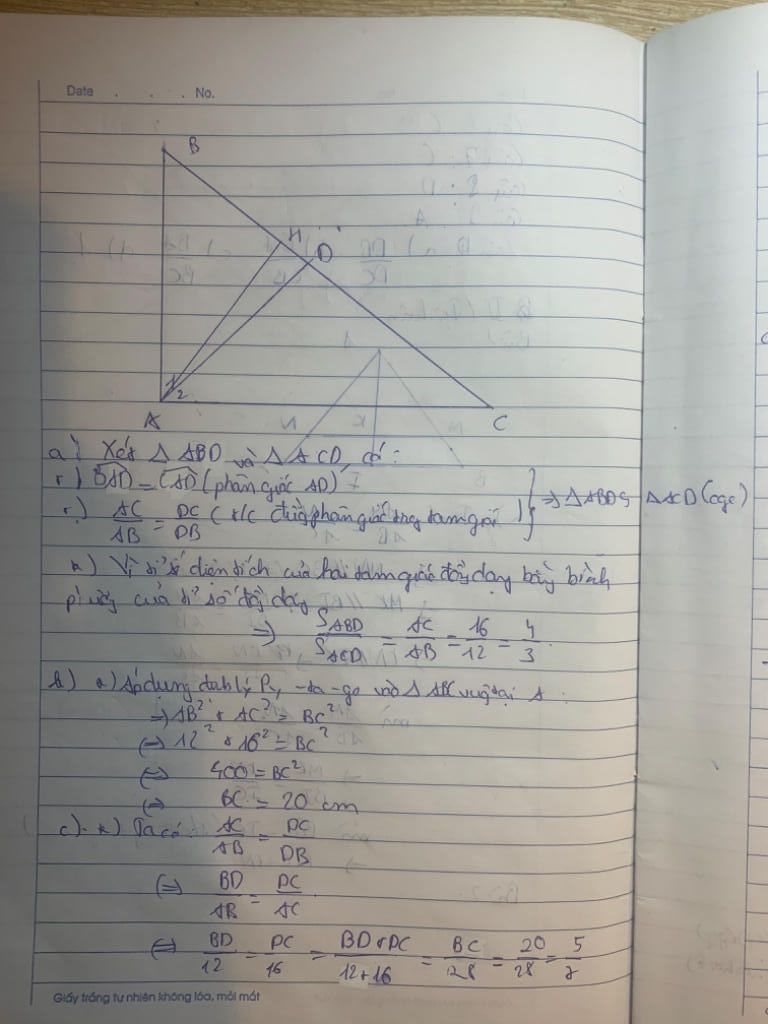 Date . . . No.
B
H
D
1
2
A
C
a) Xét Δ ABD và Δ ACD, có:
+) BAD = CAD (phân giác AD)
+) AC/AB = DC/DB (t/c đường phân giác trong tam giác) } ⇒ Δ ABD ᔕ Δ ACD (cgc)
*) Vì tỉ số diện tích của hai tam giác đồng dạng bằng bình
phương của tỉ số đồng dạng
⇒ S_ABD/S_ACD = AC/AB = 16/12 = 4/3
b) *) Áp dụng định lý Py-ta-go vào Δ ABC vuông tại A:
⇒ AB² + AC² = BC²
⇔ 12² + 16² = BC²
⇔ 400 = BC²
⇔ BC = 20 cm
c) *) Ta có: AC/AB = DC/DB
⇔ BD/AB = DC/AC
⇔ BD/12 = DC/16 = BD+DC/12+16 = BC/28 = 20/28 = 5/7
Giấy trắng tự nhiên không lóa, mỏi mắt